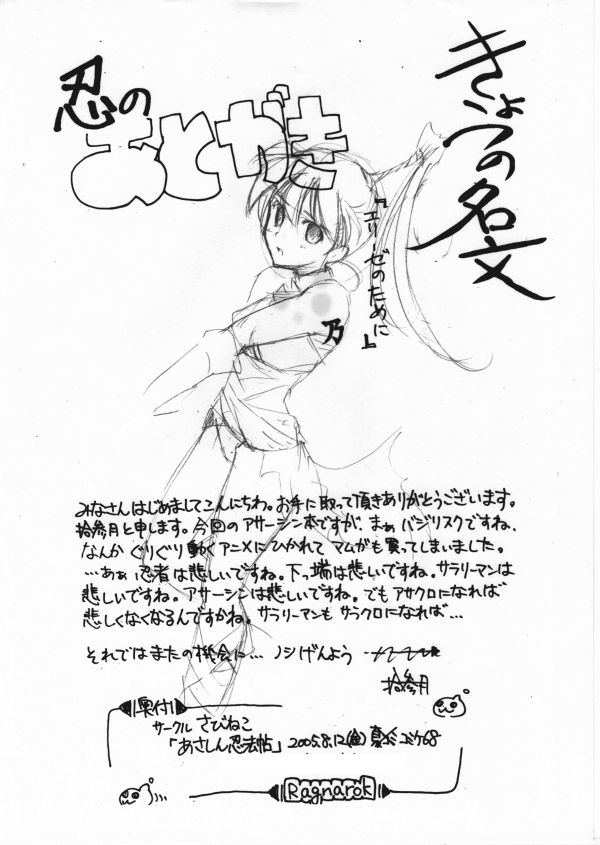 きょうの名文
『エリーゼのために』
忍の
あとがき
乃
みなさんはじめましてこんにちわ。お手に取って頂きありがとうございます。
拾参月と申します。今回のアサーシン本ですが、まぁバジリスクですね、
なんかぐりぐり動くアニメにひかれてマムがも買ってしまいました。
…あぁ忍者は悲しいですね。下っ端は悲しいですね。サラリーマンは
悲しいですね。アサーシンは悲しいですね。でもアサクロになれば
悲しくなくなるんですかね。サラリーマンもサラクロになれば…
それではまたの機会に…ノシげんよう
拾参月
奥付
サークル さびねこ
「あさしん忍法帖」2005.8.12(金) コミケ68
Ragnarok